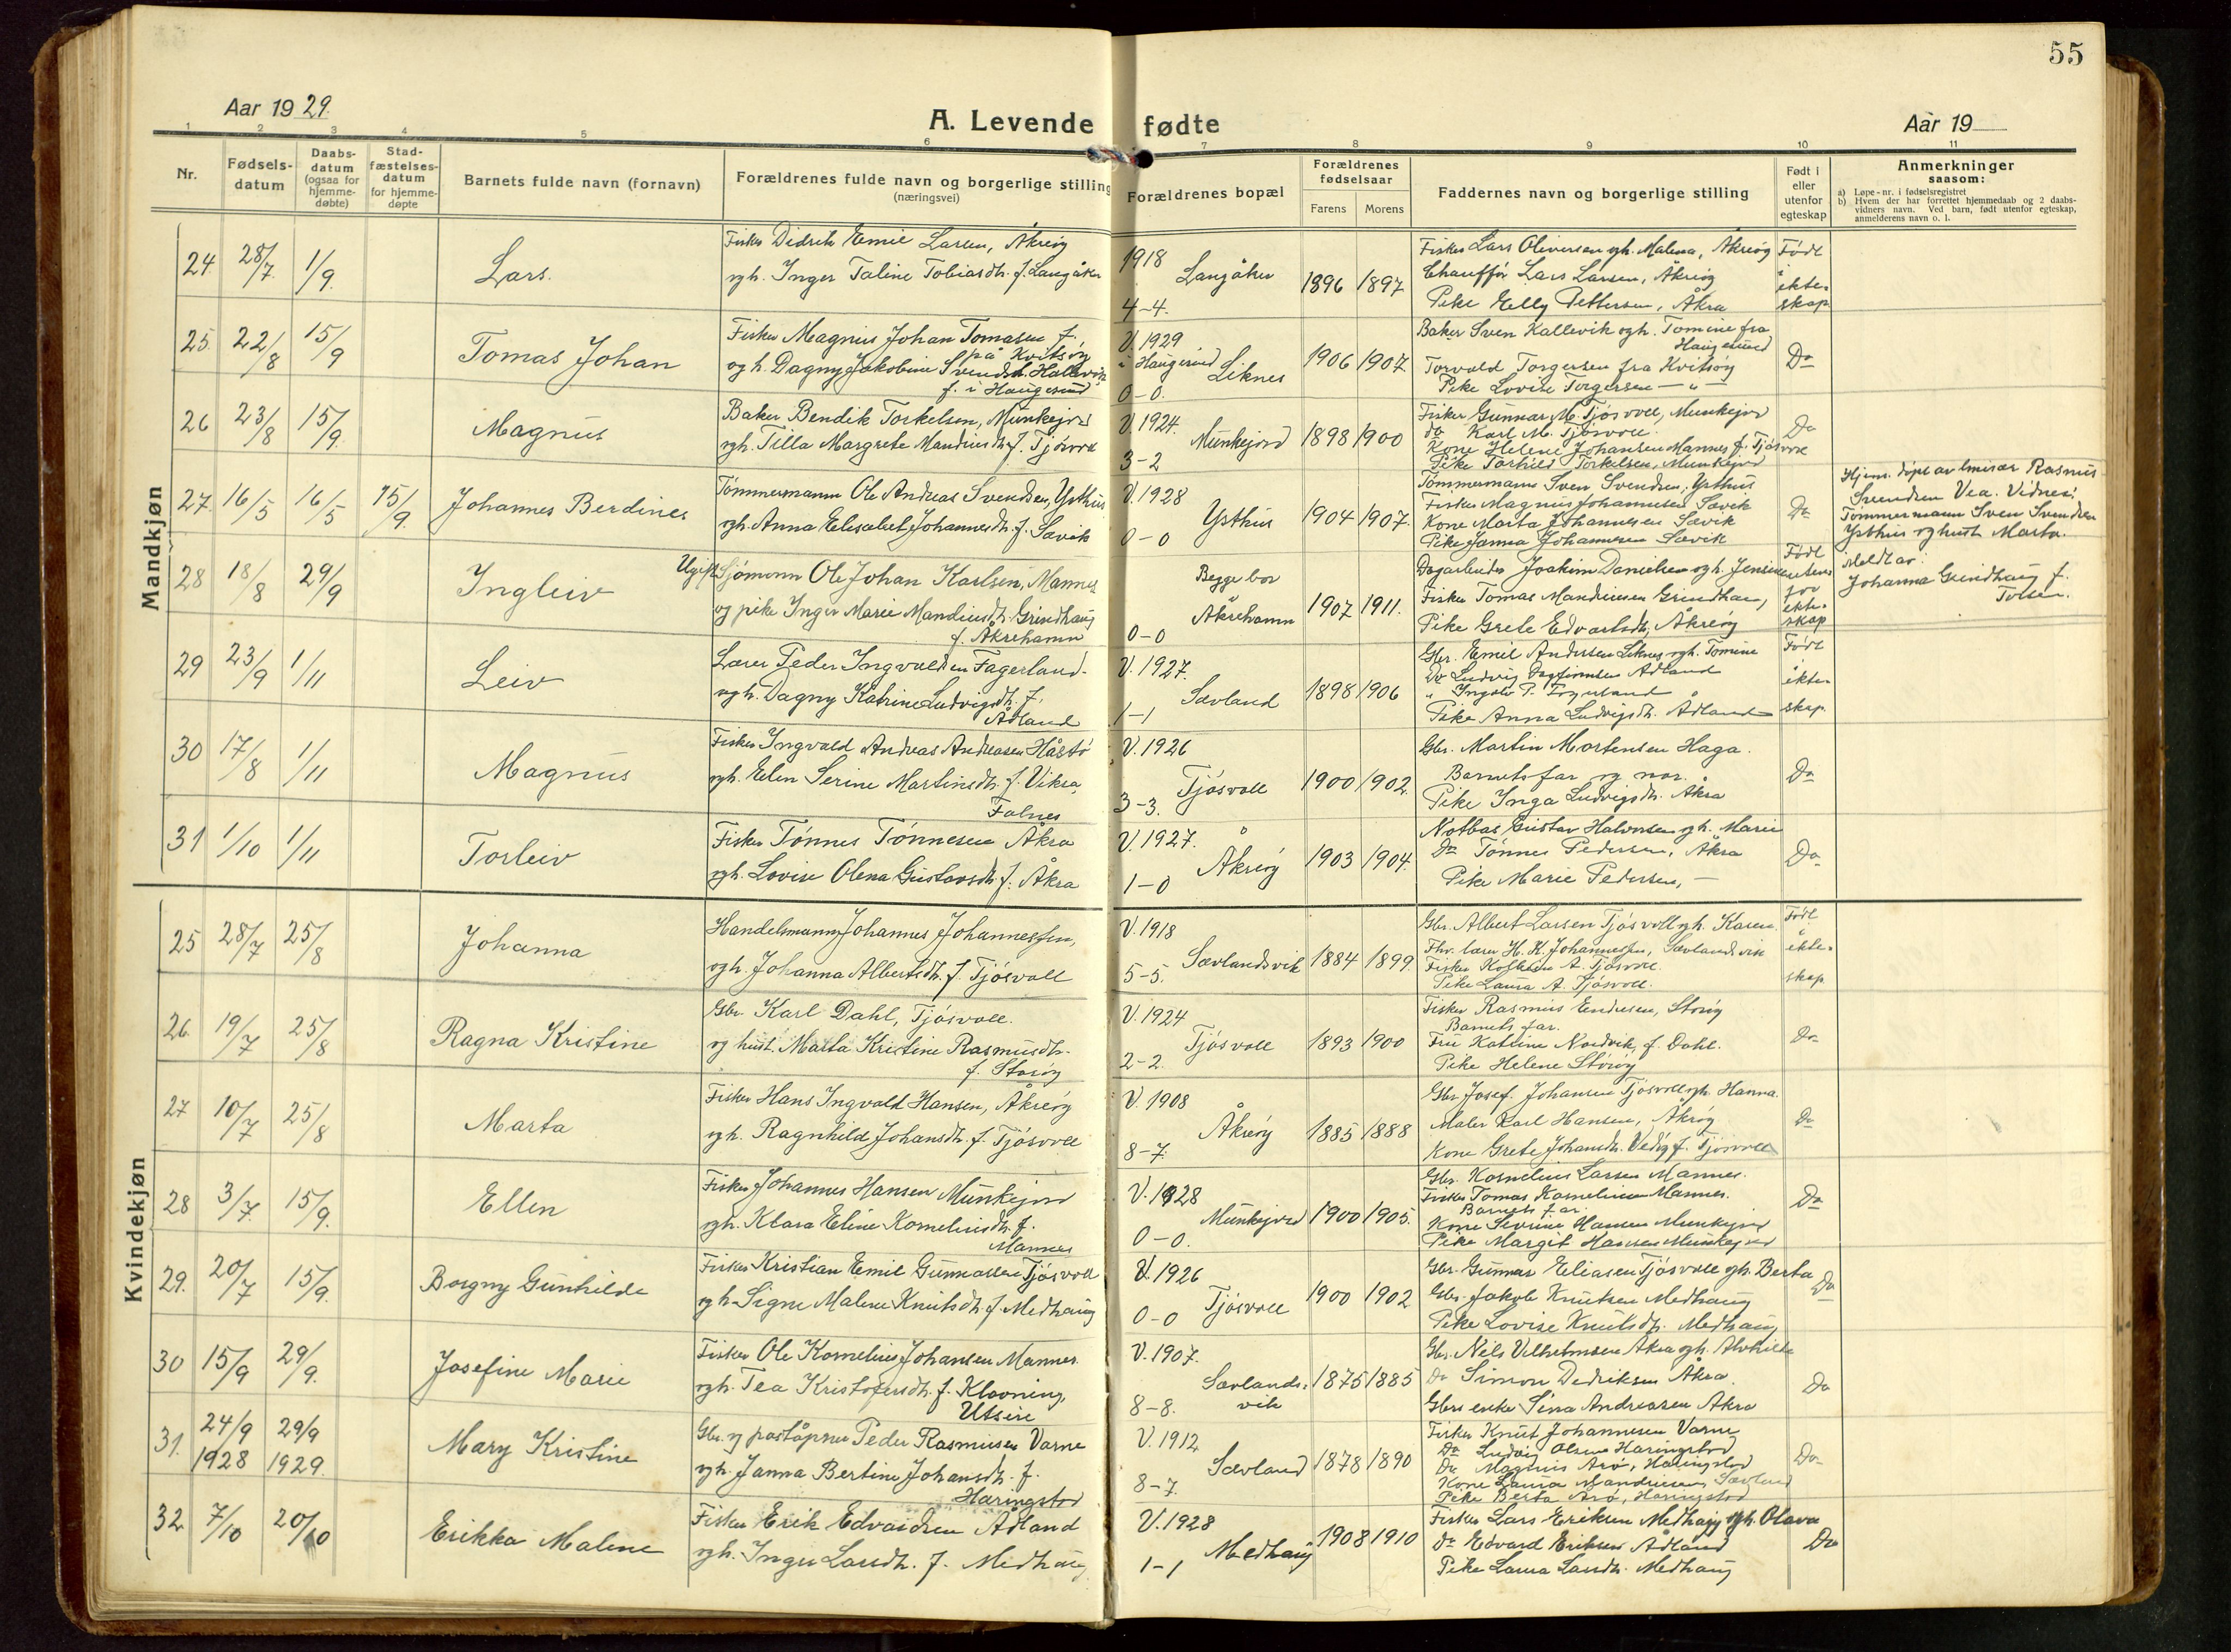 55
Aar 19 29.
A. Levende fødte
Aar 19
1 2 3 4 5 6 7 8 9 10 11
Nr.
Fødsels-
datum
Daabs-
datum
(ogsaa for
hjemme-
døbte)
Stad-
fæstelses-
datum
for hjemme-
døpte
Barnets fulde navn (fornavn)
Forældrenes fulde navn og borgerlige stilling
(næringsvei)
Forældrenes bopæl
Forældrenes
fødselsaar
Farens Morens
Faddernes navn og borgerlige stilling
Født i
eller
utenfor
egteskap
Anmerkninger
saasom:
a) Løpe-nr. i fødselsregistret
b) Hvem der har forrettet hjemmedaab og 2 daabs-
vidners navn. Ved barn, født utenfor egteskap,
anmelderens navn o. l.
Mandkjøn
24 28/7 1/9. Lars.
Fisker Didrik Emil Larsen, Åkreøy
ogh. Inger Taline Tobiasdtr. f. Langåker
1918
Langåker
4-4.
1896 1897
Fisker Lars Oliversen ogh. Malena, Åkreøy
Chauffør Lars Larsen, Åkreøy
Pike Elly Pettersen, Åkra
Født
i
ekte-
skap
25 22/8 15/9 Tomas Johan
Fisker Magnus Johan Tomasen f.
på Kvitsøy
og h. Dagny Jakobine Svendsdtr. Hallevik
f. i Haugesund
V. 1929
i Haugesund
Liknes
0-0.
1906 1907
Baker Sven Kallevik ogh. Tomine fra
Haugesund
Torvald Torgersen fra Kvitsøy
Pike Lovise Torgersen — " —
Do
26 23/8 15/9. Magnus
Baker Bendik Torkelsen, Munkejord
ogh. Tilla Margrete Mandiusdtr. f. Tjøsvoll
V. 1924.
Munkejord
3-2
1898 1900
Fisker Gunnar M. Tjøsvoll, Munkejord
do Karl M. Tjøsvoll.
Kone Helene Johansen Mannes f. Tjøsvoll
Pike Torhild Torkelsen, Munkejord
Do
27. 16/5 16/5 15/9. Johannes Berdines
Tømmermann Ole Andreas Svendsen, Ysthus
ogh. Anna Elisabet Johannesdtr. f. Sævik
V. 1928
Ysthus
0-0
1904 1907.
Tømmermann Sven Svendsen, Ysthus
Fisker Magnus Johannesen Sævik
Kone Marta Johannesen Sævik
Pike Janna Johannesen Sævik
Do
Hjem. døpt av emisær Rasmus
Svendsen Vea. Vidner:
Tømmermann Sven Svendsen
Ysthus og hust. Marta.
28 18/8 29/9 Ingleiv
Ugift Sjømann Ole Johan Karlsen, Mannes
og pike Inger Marie Mandiusdtr. Grindhaug
f. Åkrehamn
Begge bor
Åkrehamn
0-0
1907 1911.
Dagarbeider Joakim Danielsen ogh. Jensine
Fisker Tomas Mandiussen Grindhaug,
Pike Grete Edvartsdtr, Åkreøy
Født
utenfor
ekte-
skap
Meldt av:
Johanna Grindhaug f.
29 23/9 1/11 Leiv
Lærer Peder Ingvaldsen Fagerland
ogh. Dagny Katrine Ludvigsdtr. f.
Ådland
V. 1927.
Sævland
1-1
1898 1906
Gbr. Emil Andersen Liknes ogh. Tomine
Do Ludvig Dagfinnsen Ådland
" Ingolv P. Fagerland
Pike Anna Ludvigsdtr. Ådland
Født
i
ekte-
skap.
30 17/8 1/11 Magnus
Fisker Ingvald Andreas Andreasen Håstø
ogh. Elen Serine Martinsdtr. f. Vikra,
Falnes
V. 1926
Tjøsvoll
3-3.
1900 1902.
Gbr. Martin Mortensen Haga.
Barnets far og mor.
Pike Inga Ludvigsdtr. Åkra
Do
31 1/10 1/11 Torleiv
Fisker Tønnes Tønnesen Åkra
ogh. Lovise Olena Gustavsdtr. f. Åkra
V. 1927.
Åkreøy
1-0
1903 1904.
Notbas Gustav Halvorsen ogh. Marie
Do Tønnes Pedersen, Åkra
Pike Marie Pedersen, —
Do
Kvindekjøn
25 28/7 25/8 Johanna
Handelsmann Johannes Johannessen,
ogh. Johanna Albertsdtr. f. Tjøsvoll
V. 1918
Sævlandsvik
5-5.
1884 1899.
Gbr. Albert Larsen Tjøsvoll ogh. Karen
Fhv. lærer H. K. Johannessen, Sævlandsvik
Fisker A. Tjøsvoll.
Pike Laura A. Tjøsvoll.
Født
i
ekte-
skap
26 19/7 25/8 Ragna Kristine
Gbr. Karl Dahl, Tjøsvoll.
og hust. Marta Kristine Rasmusdtr.
f. Storøy
V. 1924
Tjøsvoll
2-2.
1893 1900
Fisker Rasmus Endresen, Storøy
Barnets far.
Fru Katrine Nordvik, f. Dahl.
Pike Helene Storøy
Do
27 10/7 25/8 Marta
Fisker Hans Ingvald Hansen, Åkreøy
ogh. Ragnhild Johansdtr. f. Tjøsvoll
V. 1908
Åkreøy
8-7.
1885 1888
Gbr. Josef Johansen Tjøsvoll ogh. Hanna.
Maler Karl Hansen, Åkrøy
Kone Grete Johansdtr. Vedøy f. Tjøsvoll
Do
28 3/7. 15/9. Ellen
Fisker Johannes Hansen Munkejord
ogh. Klara Eline Korneliusdtr. f.
Mannes
V. 1928
Munkejord
0-0.
1900 1905.
Gbr. Kornelius Larsen Mannes.
Fisker Tomas Korneliussen Mannes.
Barnets far.
Kone Severine Hansen Munkejord
Pike Margit Hansen Munkejord
Do
29. 20/7 15/9. Borgny Gunhilde
Fisker Kristian Emil Gunnarsen Tjøsvoll
ogh. Signe Malene Knutsdtr. f. Medhaug
V. 1926
Tjøsvoll
0-0
1900 1902
Gbr. Gunnar Eliasen Tjøsvoll ogh. Berta
Gbr. Jakob Knutsen Medhaug
Pike Lovise Knutsdtr. Medhaug
Do
30 15/9 29/9. Josefine Marie
Fisker Ole Kornelius Johansen Mannes
ogh. Tea Kristofersdtr. f. Klovning,
Utsire
V. 1907.
Sævlands-
vik
8-8.
1875 1885
Gbr. Nils Vilhelmsen Åkra ogh. Alvhilde
Do Simon Dedriksen Åkra.
Gbrs enke Sina Andreasen Åkra
Do
31. 24/9 29/9 Mary Kristine
1928 1929.
Gbr. og poståpner Peder Rasmussen Varne
ogh. Janna Bertine Johansdtr. f.
Haringstad
V. 1912
Sævland
8-7.
1878 1890
Fisker Knut Johannesen Varne
Do Ludvig Olsen Haringstad
Do Magnus Arø, Haringstad
Kone Laura Mandiussen, Sævland
Pike Berta Arø, Haringstad
Do
32 7/10 20/10 Erikka Malene
Fisker Erik Edvardsen Ådland
ogh. Inger Larsdtr. f. Medhaug
V. 1928
Medhaug
1-1
1908 1910
Fisker Lars Eriksen Medhaug ogh. Olava
Do Edvard Eriksen Ådland
Pike Laura Larsdtr. Medhaug
Do